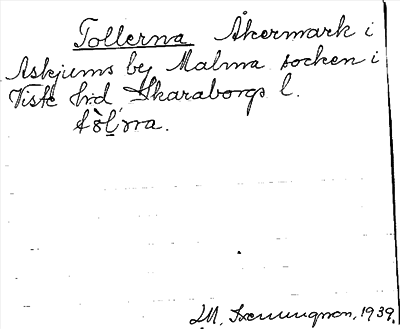 Tollerna Åkermark i
Askjums by Malma socken i
Viste hd Skaraborgs l.
tòl̠ʹɳa.
1939.